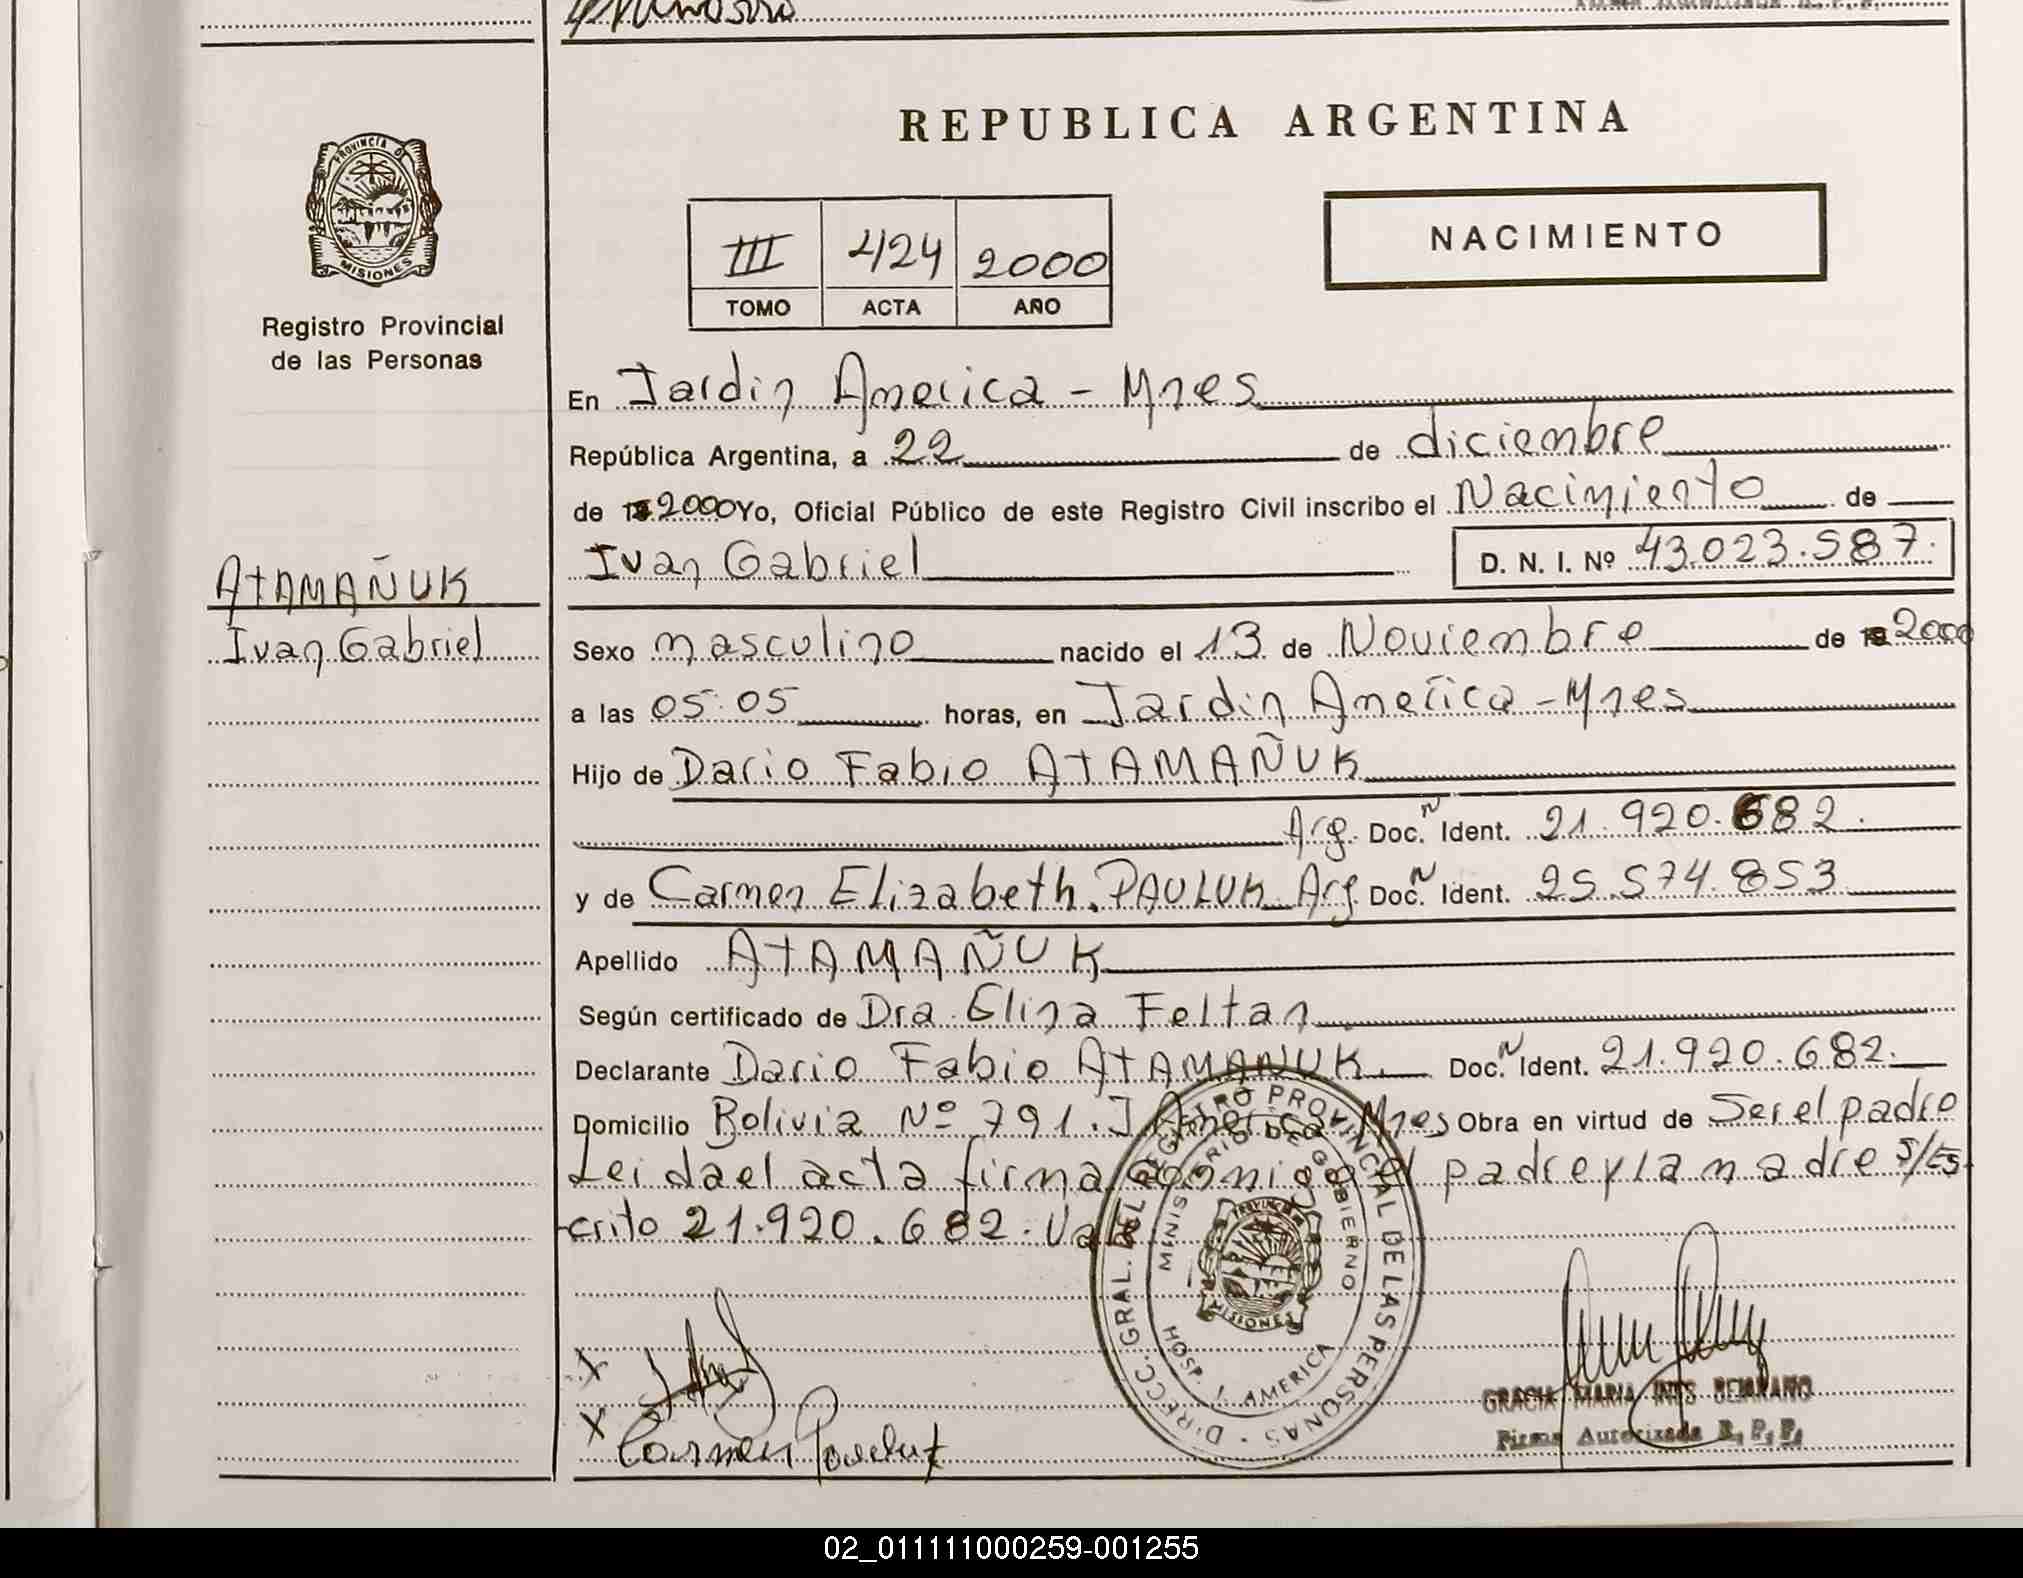 REPUBLICA ARGENTINA
PROVINCIA DE
MISIONES
Registro Provincial
de las Personas
III 424 2000
TOMO ACTA AÑO
NACIMIENTO
En Jardin America - Mnes
República Argentina, a 22 de diciembre
de 2000 Yo, Oficial Público de este Registro Civil inscribo el Nacimiento de
Ivan Gabriel D. N. I. Nº 43.023.587.
ATAMAÑUK
Ivan Gabriel
Sexo masculino nacido el 13 de Noviembre de 2000
a las 05:05 horas, en Jardin America - Mnes
Hijo de Dario Fabio ATAMAÑUK
Arg. Doc. N Ident. 21.920.682.
y de Carmen Elizabeth PAULUK Arg. Doc. N Ident. 25.574.853
Apellido ATAMAÑUK
Según certificado de Dra. Elina Feltan
Declarante Dario Fabio ATAMANUK Doc. N Ident. 21.920.682.
Domicilio Bolivia Nº 791. J America Mnes Obra en virtud de Ser el padre
Leida el acta firma conmigo el padre y la madre S/Es
crito 21.920.682. Vale
DIRECC. GRAL. DEL REGISTRO PROVINCIAL DE LAS PERSONAS
MINISTERIO DE GOBIERNO
PROVINCIA DE
MISIONES
HOSP. J. AMERICA
X
X Carmen Pauluk
GRACIA MARIA INES BEJARANO
Firma Autorizada R. P. P.
02_011111000259-001255